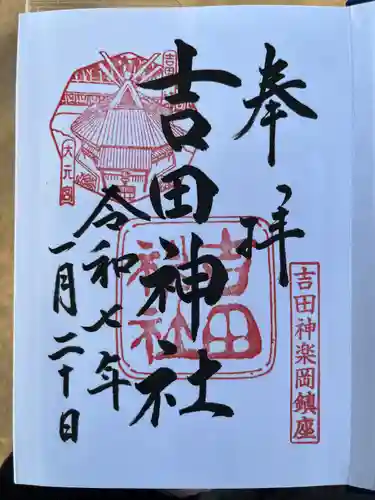 奉拝
吉田神楽岡鎮座
吉田神社
吉田神社
大元宮
令和七年
一月二十日